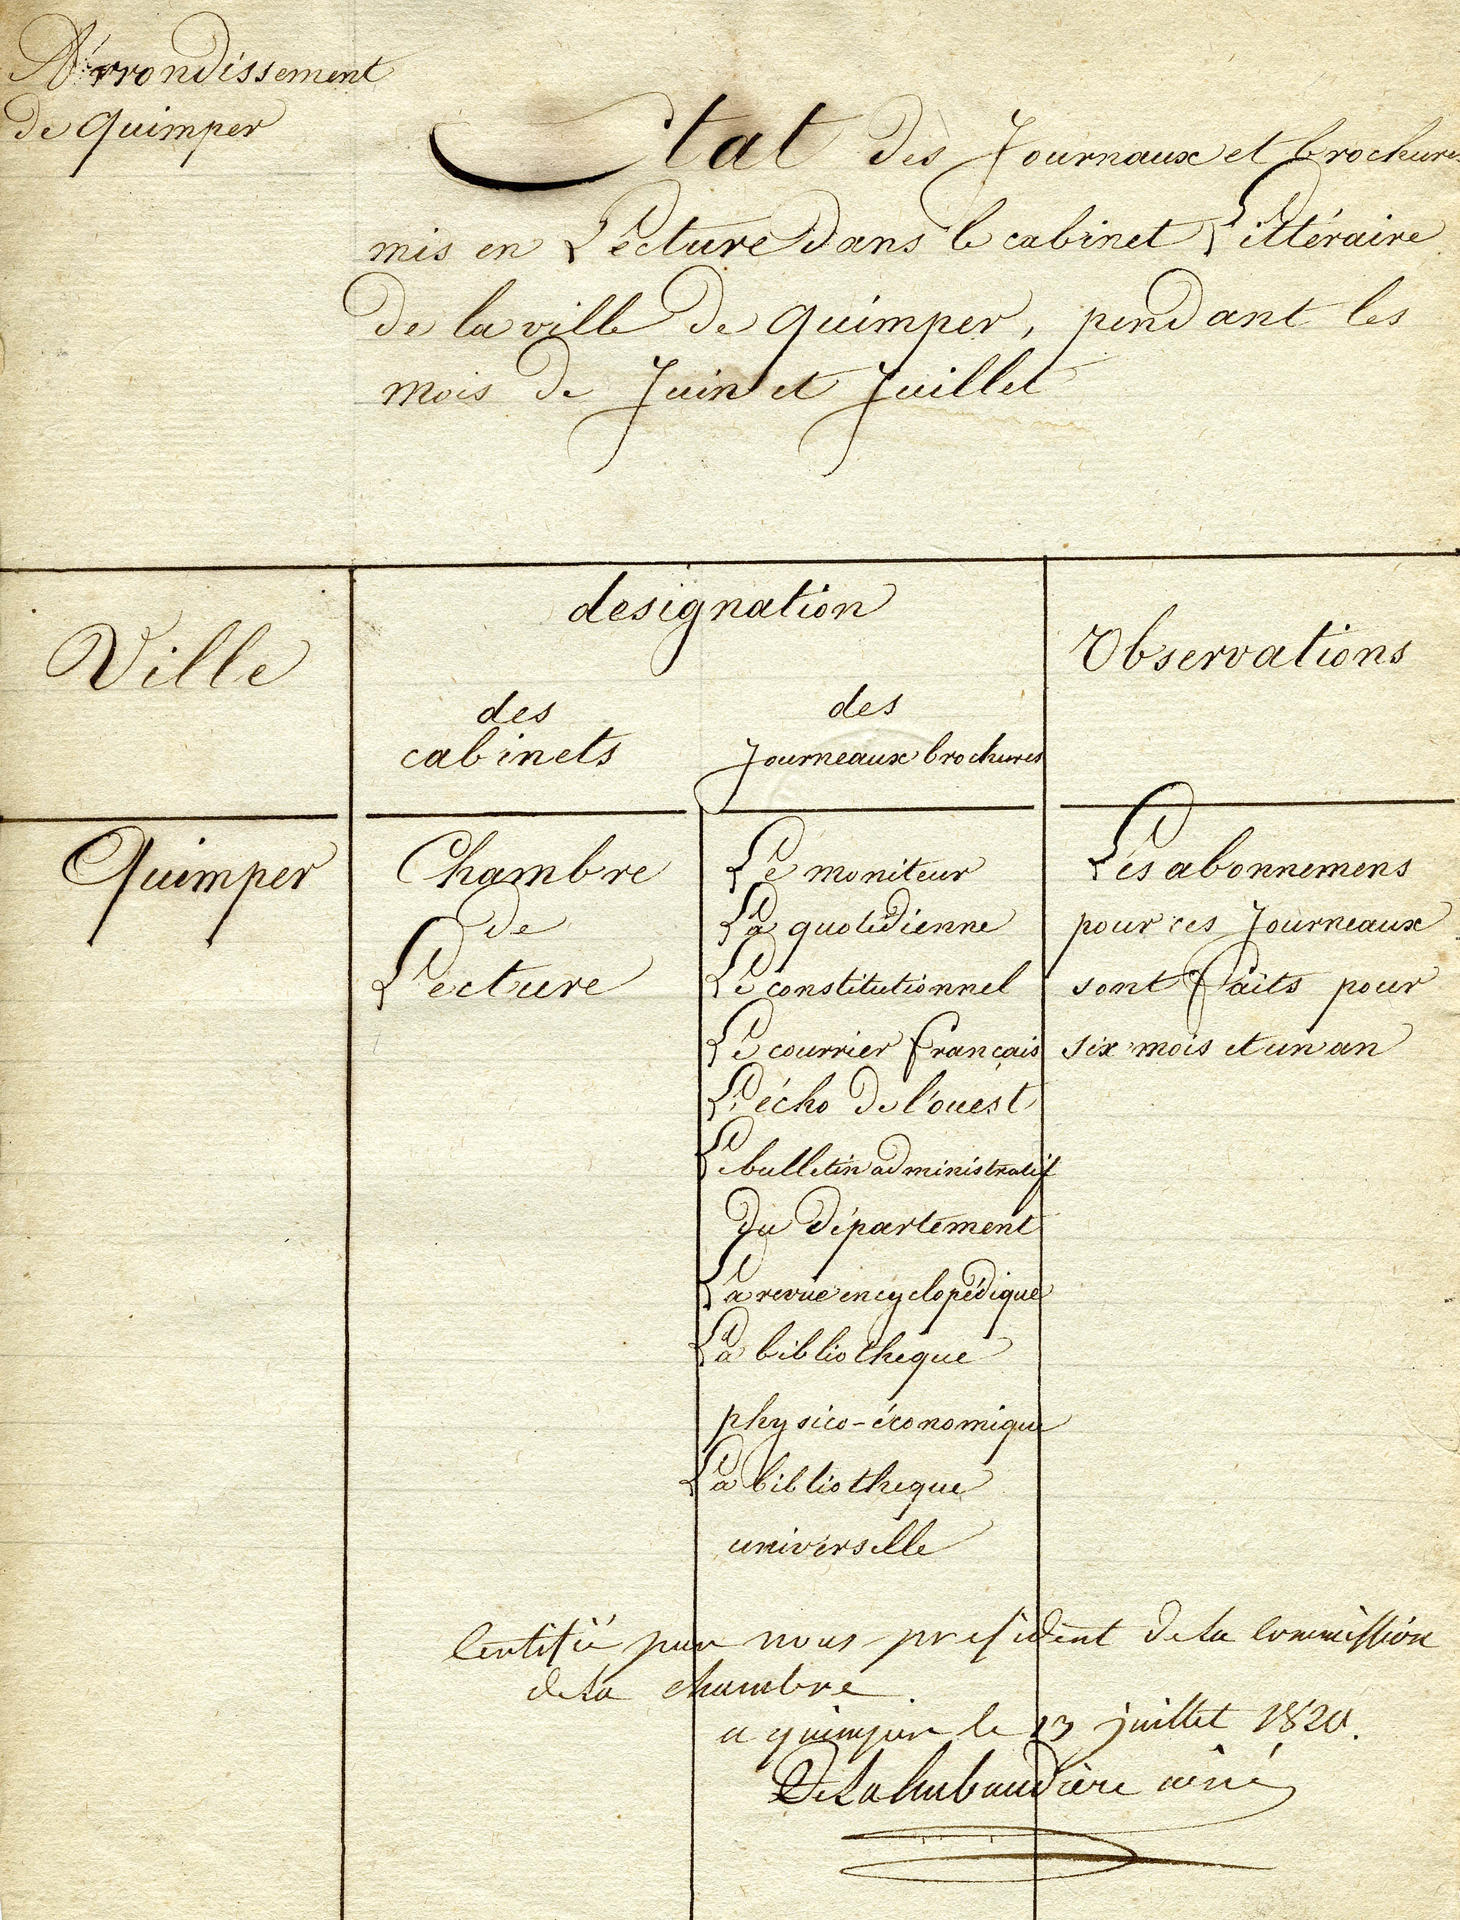 Arrondissement
de Quimper
Etat des Journaux et brochures
mis en Lecture dans le cabinet Littéraire
de la ville de Quimper, pendant les
mois de Juin et Juillet
Ville
designation
des
cabinets
des
Journeaux brochures
Observations
Quimper
Chambre
de
Lecture
Le moniteur
La quotidienne
Le constitutionnel
Le courrier français
L'écho de l'ouest
Le bulletin administratif
du département
La revue encyclopédique
La bibliotheque
physico-économique
La bibliotheque
universelle
Les abonnemens
pour ces Journeaux
sont faits pour
six mois et un an
Certifié par nous president de la commission
de la chambre
a quimper le 13 juillet 1820.
De La hubaudière ainé